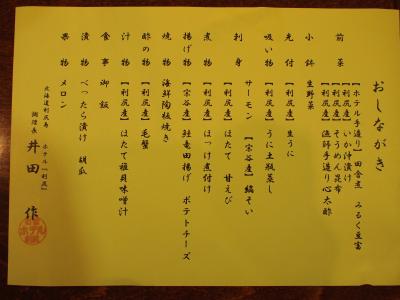 おしながき
前菜 【ホテル手造り】田舎煮 みるく豆富
【利尻産】いか沖漬け
【利尻産】そうめん昆布
【利尻産】漁師手造り心太酢
小鉢 生野菜
先付 【利尻産】生うに
吸い物 【利尻産】うに土瓶蒸し
刺身 サーモン 【宗谷産】縞そい
【利尻産】ほたて 甘えび
煮物 【利尻産】ほっけ煮付け
揚げ物 【宗谷産】鮭竜田揚げ ポテトチーズ
焼物 海鮮陶板焼き
酢の物 【利尻産】毛蟹
汁物 【利尻産】ほたて稚貝味噌汁
食事 御飯
漬物 べったら漬け 胡瓜
果物 メロン
北海道利尻島
ホテル『利尻』
調理長 井田 作